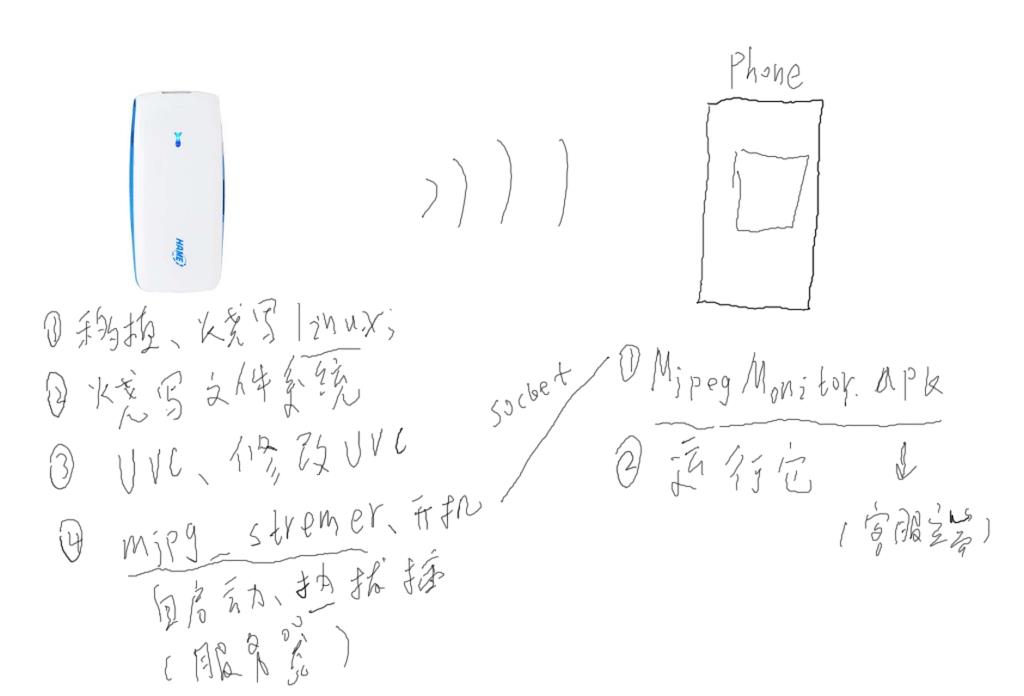 Phone
HAME
① 移植、烧写linux;
② 烧写文件系统
③ UVC、修改UVC
④ mjpg_stremer、开机
自启动、热拔插
(服务器)
socket
① MjpegMonitor.apk
② 运行它